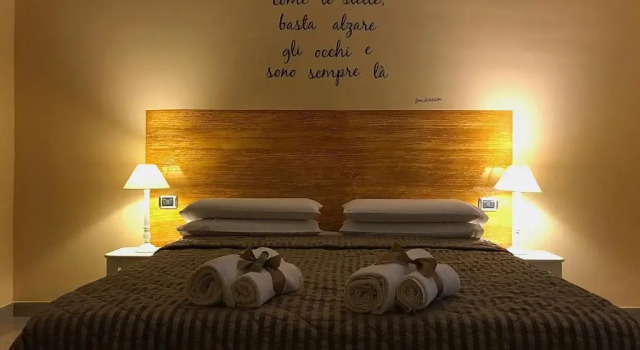 come le stelle,
basta alzare
gli occhi e
sono sempre là